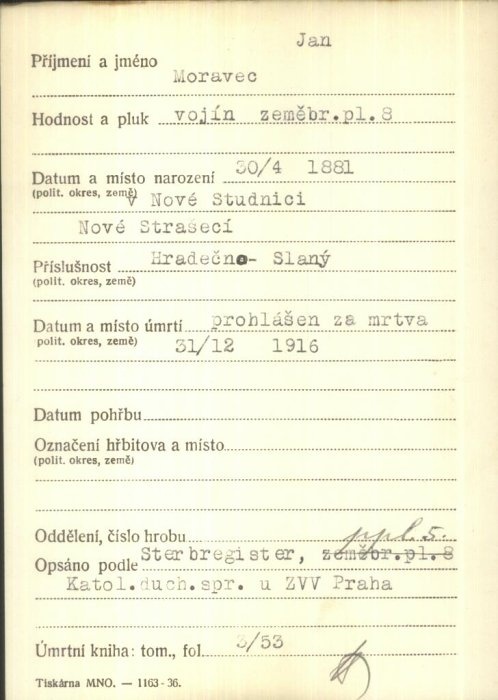 Jan
Příjmení a jméno
Moravec
Hodnost a pluk vojín zeměbr.pl.8
Datum a místo narození 30/4 1881
(polit. okres, země) v Nové Studnici
Nové Strašecí
Příslušnost Hradečno- Slaný
(polit. okres, země)
Datum a místo úmrtí prohlášen za mrtva
polit. okres, země) 31/12 1916
Datum pohřbu
Označení hřbitova a místo
(polit. okres, země)
Oddělení, číslo hrobu ppl. 5.
Opsáno podle Sterbregister, zeměbr.pl.8
Katol.duch.spr. u ZVV Praha
Úmrtní kniha: tom., fol. 3/53
Tiskárna MNO. — 1163-36.